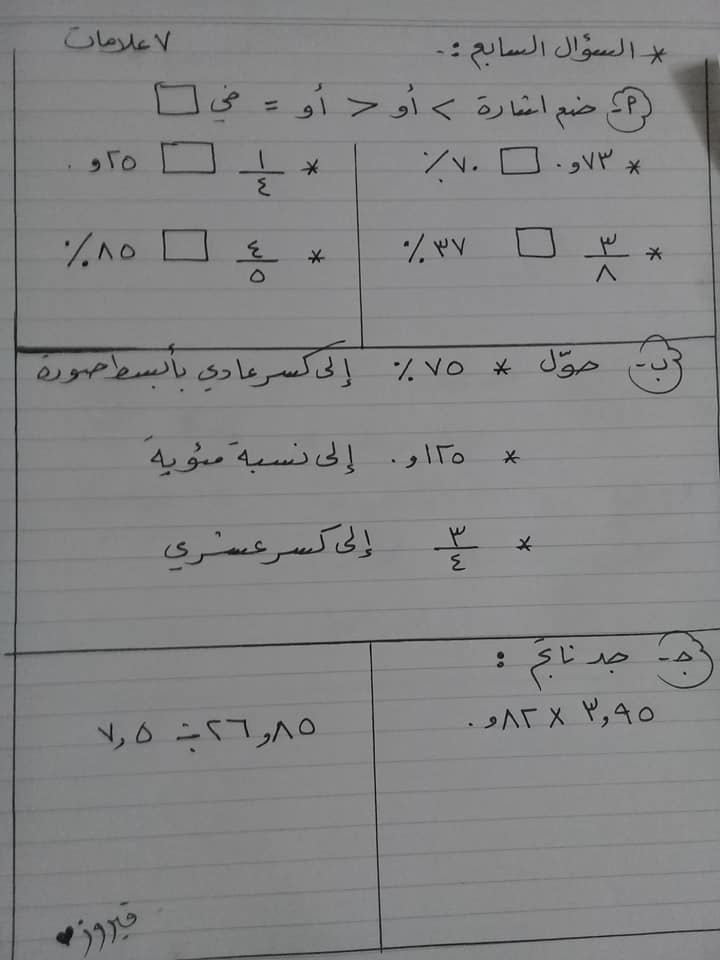 * السؤال السابع :- ٧ علامات
P- ضع اشارة < أو > أو = في □
* ٧٣و٠ □ ٧٠٪
* ١/٤ □ ٢٥و٠
* ٣/٨ □ ٣٧٪
* ٤/٥ □ ٨٥٪
ب- حوّل * ٧٥٪ إلى كسر عادي بأبسط صورة
* ١٢٥و٠ إلى نسبة مئوية
* ٣/٤ إلى كسر عشري
ج- جد ناتج :
٣,٩٥ × ٨٢و٠
٢٦و٨٥ ÷ ٧,٥
فيروز ♥